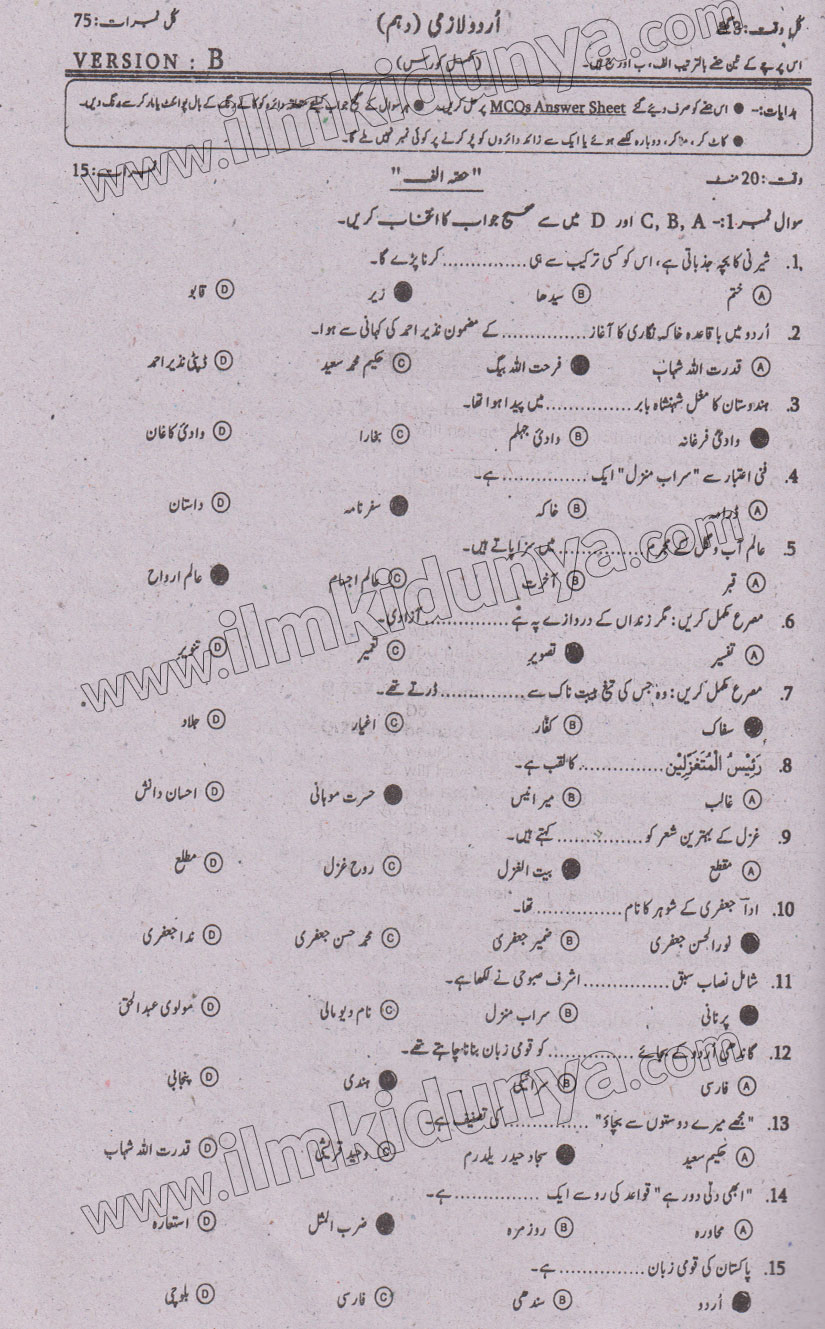 کل وقت: 3 گھنٹے اُردو لازمی (دہم) کل نمبرات: 75
اس پرچے کے تین حصے بالترتیب الف، ب اور ج ہیں۔ (مکمل کورس) VERSION : B
ہدایات:- ● اس حصے کو صرف دیئے گئے MCQs Answer Sheet پر حل کریں۔ ● ہر سوال کے صحیح جواب کیلئے متعلقہ دائرہ کو کالے رنگ کے بال پوائنٹ یا مارکر سے رنگ دیں۔
● کاٹ کر، مٹا کر، دوبارہ لکھے ہوئے یا ایک سے زائد دائروں کو پُر کرنے پر کوئی نمبر نہیں ملے گا۔
وقت: 20 منٹ "حصہ الف" نمبرات: 15
سوال نمبر 1:- C, B, A اور D میں سے صحیح جواب کا انتخاب کریں۔
1. شیرنی کا بچہ جذباتی ہے، اس کو کسی ترکیب سے ہی .............. کرنا پڑے گا۔
Ⓐ ختم Ⓑ سیدھا ● زیر Ⓓ قابو
2. اُردو میں باقاعدہ خاکہ نگاری کا آغاز .............. کے مضمون نذیر احمد کی کہانی سے ہوا۔
Ⓐ قدرت اللہ شہاب ● فرحت اللہ بیگ Ⓒ حکیم محمد سعید Ⓓ ڈپٹی نذیر احمد
3. ہندوستان کا مغل شہنشاہ بابر .............. میں پیدا ہوا تھا۔
● وادیٔ فرغانہ Ⓑ وادیٔ جہلم Ⓒ بخارا Ⓓ وادیٔ کاغان
4. فنی اعتبار سے "سراب منزل" ایک .............. ہے۔
Ⓐ ڈرامہ Ⓑ خاکہ ● سفرنامہ Ⓓ داستان
5. عالم آب و گل کے مجرم .............. میں سزا پاتے ہیں۔
Ⓐ قبر Ⓑ آخرت Ⓒ عالم اجسام ● عالم ارواح
6. مصرع مکمل کریں: مگر زنداں کے دروازے پہ ہے .............. آزادی۔
Ⓐ تفسیر ● تصویر Ⓒ تعمیر Ⓓ تنویر
7. مصرع مکمل کریں: وہ جس کی تیغ ہیبت ناک سے .............. ڈرتے تھے۔
● سفاک Ⓑ کفّار Ⓒ اغیار Ⓓ جلاد
8. رَئِیْسُ الْمُتَغَزِّلِیْن .............. کا لقب ہے۔
Ⓐ غالب Ⓑ میر انیس ● حسرت موہانی Ⓓ احسان دانش
9. غزل کے بہترین شعر کو .............. کہتے ہیں۔
Ⓐ مقطع ● بیت الغزل Ⓒ روح غزل Ⓓ مطلع
10. اداؔ جعفری کے شوہر کا نام .............. تھا۔
● نور الحسن جعفری Ⓑ ضمیر جعفری Ⓒ محمد حسن جعفری Ⓓ ندا جعفری
11. شامل نصاب سبق .............. اشرف صبوحی نے لکھا ہے۔
● پرنانی Ⓑ سراب منزل Ⓒ نام دیو مالی Ⓓ مولوی عبدالحق
12. گاندھی اُردو کے بجائے .............. کو قومی زبان بنانا چاہتے تھے۔
Ⓐ فارسی Ⓑ سرائیکی ● ہندی Ⓓ پنجابی
13. "مجھے میرے دوستوں سے بچاؤ" .............. کی تصنیف ہے۔
Ⓐ حکیم سعید ● سجاد حیدر یلدرم Ⓒ وحید قریشی Ⓓ قدرت اللہ شہاب
14. "ابھی دلی دور ہے" قواعد کی رو سے ایک .............. ہے۔
Ⓐ محاورہ Ⓑ روزمرہ ● ضرب المثل Ⓓ استعارہ
15. پاکستان کی قومی زبان .............. ہے۔
● اُردو Ⓑ سندھی Ⓒ فارسی Ⓓ بلوچی
www.ilmkidunya.com
www.ilmkidunya.com
www.ilmkidunya.com